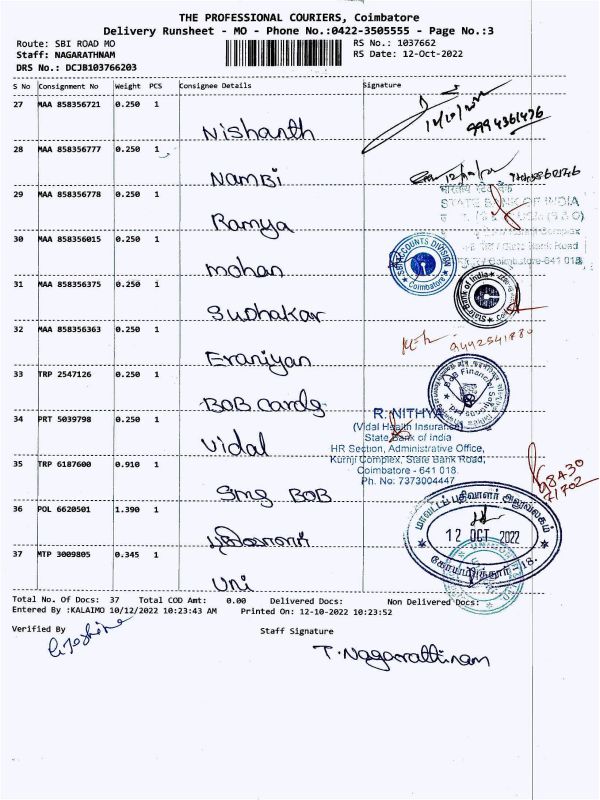 THE PROFESSIONAL COURIERS, Coimbatore
Delivery Runsheet - MO - Phone No.:0422-3505555 - Page No.:3
Route: SBI ROAD MO RS No.: 1037662
Staff: NAGARATHNAM RS Date: 12-Oct-2022
DRS No.: DCJB103766203
S No Consignment No Weight PCS Consignee Details Signature
27 MAA 858356721 0.250 1
Nishanth
9994361476
28 MAA 858356777 0.250 1
Nambi
29 MAA 858356778 0.250 1
Ramya
भारतीय स्टेट बैंक
STATE BANK OF INDIA
State Bank Road
Coimbatore-641 018
30 MAA 858356015 0.250 1
Mohan
ACCOUNTS DIVISION
Coimbatore
31 MAA 858356375 0.250 1
Sudhakar
State Bank of India
32 MAA 858356363 0.250 1
Eraniyan
9442541880
33 TRP 2547126 0.250 1
BOB Cards
BOB Financial Solutions Ltd.
34 PRT 5039798 0.250 1
Vidal
R. NITHYA
(Vidal Health Insurance)
State Bank of India
HR Section, Administrative Office,
Kurinji Complex, State Bank Road,
Coimbatore - 641 018.
Ph. No: 7373004447
35 TRP 6187600 0.910 1
SMS BOB
98430
71702
36 POL 6620501 1.390 1
பதிவாளர்
மாவட்டப் பதிவாளர் அலுவலகம்
12 OCT 2022
கோயம்புத்தூர் - 18.
37 MTP 3009805 0.345 1
Uni
Total No. Of Docs: 37 Total COD Amt: 0.00 Delivered Docs: Non Delivered Docs:
Entered By :KALAIMO 10/12/2022 10:23:43 AM Printed On: 12-10-2022 10:23:52
Verified By Staff Signature
T. Nagarathinam